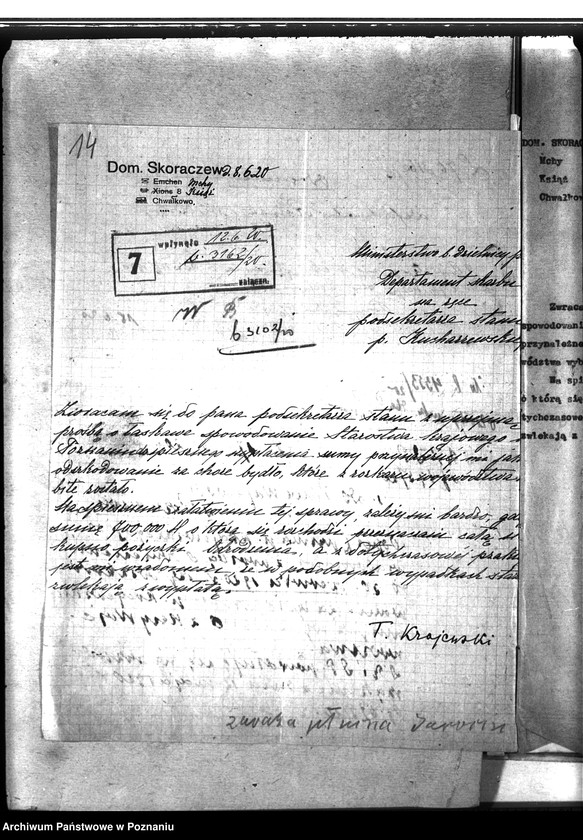 14
Dom. Skoraczew 8.6.20
Emchen Mchy
Xions 8 Książ
Chwałkowo,
wpłynęło 12.6.20
7 b. 3162/20
załączn.
W B
b 3102/20
Ministerstwo b. dzielnicy p
Departament skarbu
na ręce
podsekretarza stanu
p. Kucharzewskiego
Zwracam się do pana podsekretarza stanu z uprzejmą
prośbą o łaskawe spowodowanie Starostwa krajowego w
Poznaniu wypłacenia sumy przynależnej mi jako
odszkodowanie za chore bydło, które z rozkazu województwa
bite zostało.
Na spiesznem załatwieniu tej sprawy, zależy mi bardzo, gdyż
sumę 700,000 M o którą się rozchodzi przeznaczam całą na
kupno pożyczki Odrodzenia, a z dotychczasowej praktyki
jest mi wiadomem, że w podobnych wypadkach sta
zwlekają z wypłatą.
T. Krajewski
DOM. SKORAC
Mchy
Książ
Chwałkow
Zwraca
spowodowani
przynależne
wództwa wyb
Na spi
o którą się
tychczasowe
zwlekają z
Archiwum Państwowe w Poznaniu